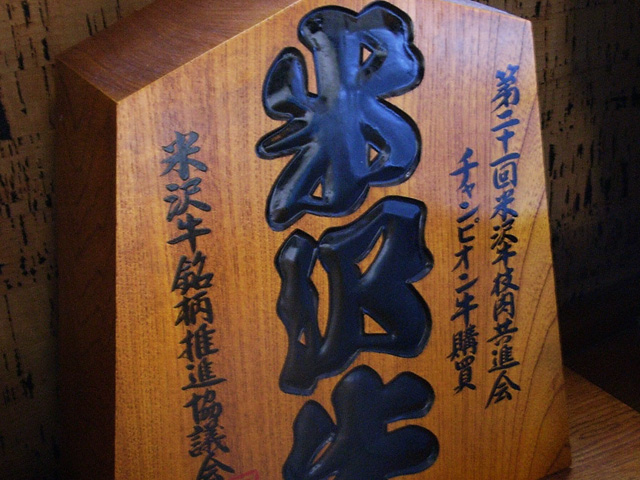 第二十一回米沢牛枝肉共進会
チャンピオン牛購買
米沢牛
米沢牛銘柄推進協議会